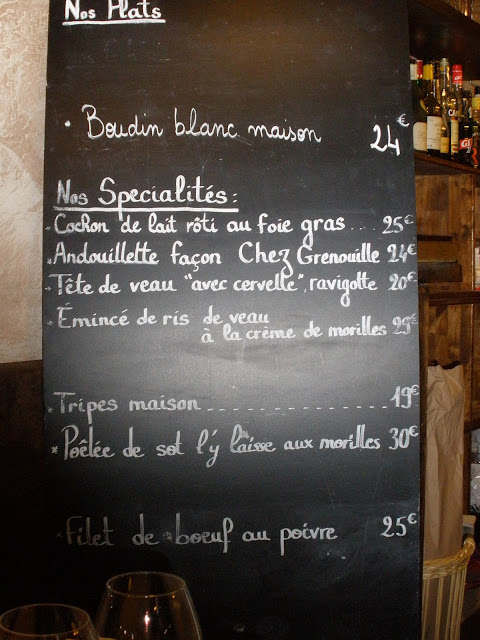 Nos Plats
• Boudin blanc maison 24€
Nos Specialités :
• Cochon de lait rôti au foie gras ... 25€
• Andouillette façon Chez Grenouille 24€
• Tête de veau "avec cervelle", ravigotte 20€
• Émincé de ris de veau
à la crème de morilles 29€
• Tripes maison ........................ 19€
* Poêlée de sot l'y laisse aux morilles 30€
• Filet de bœuf au poivre 25€